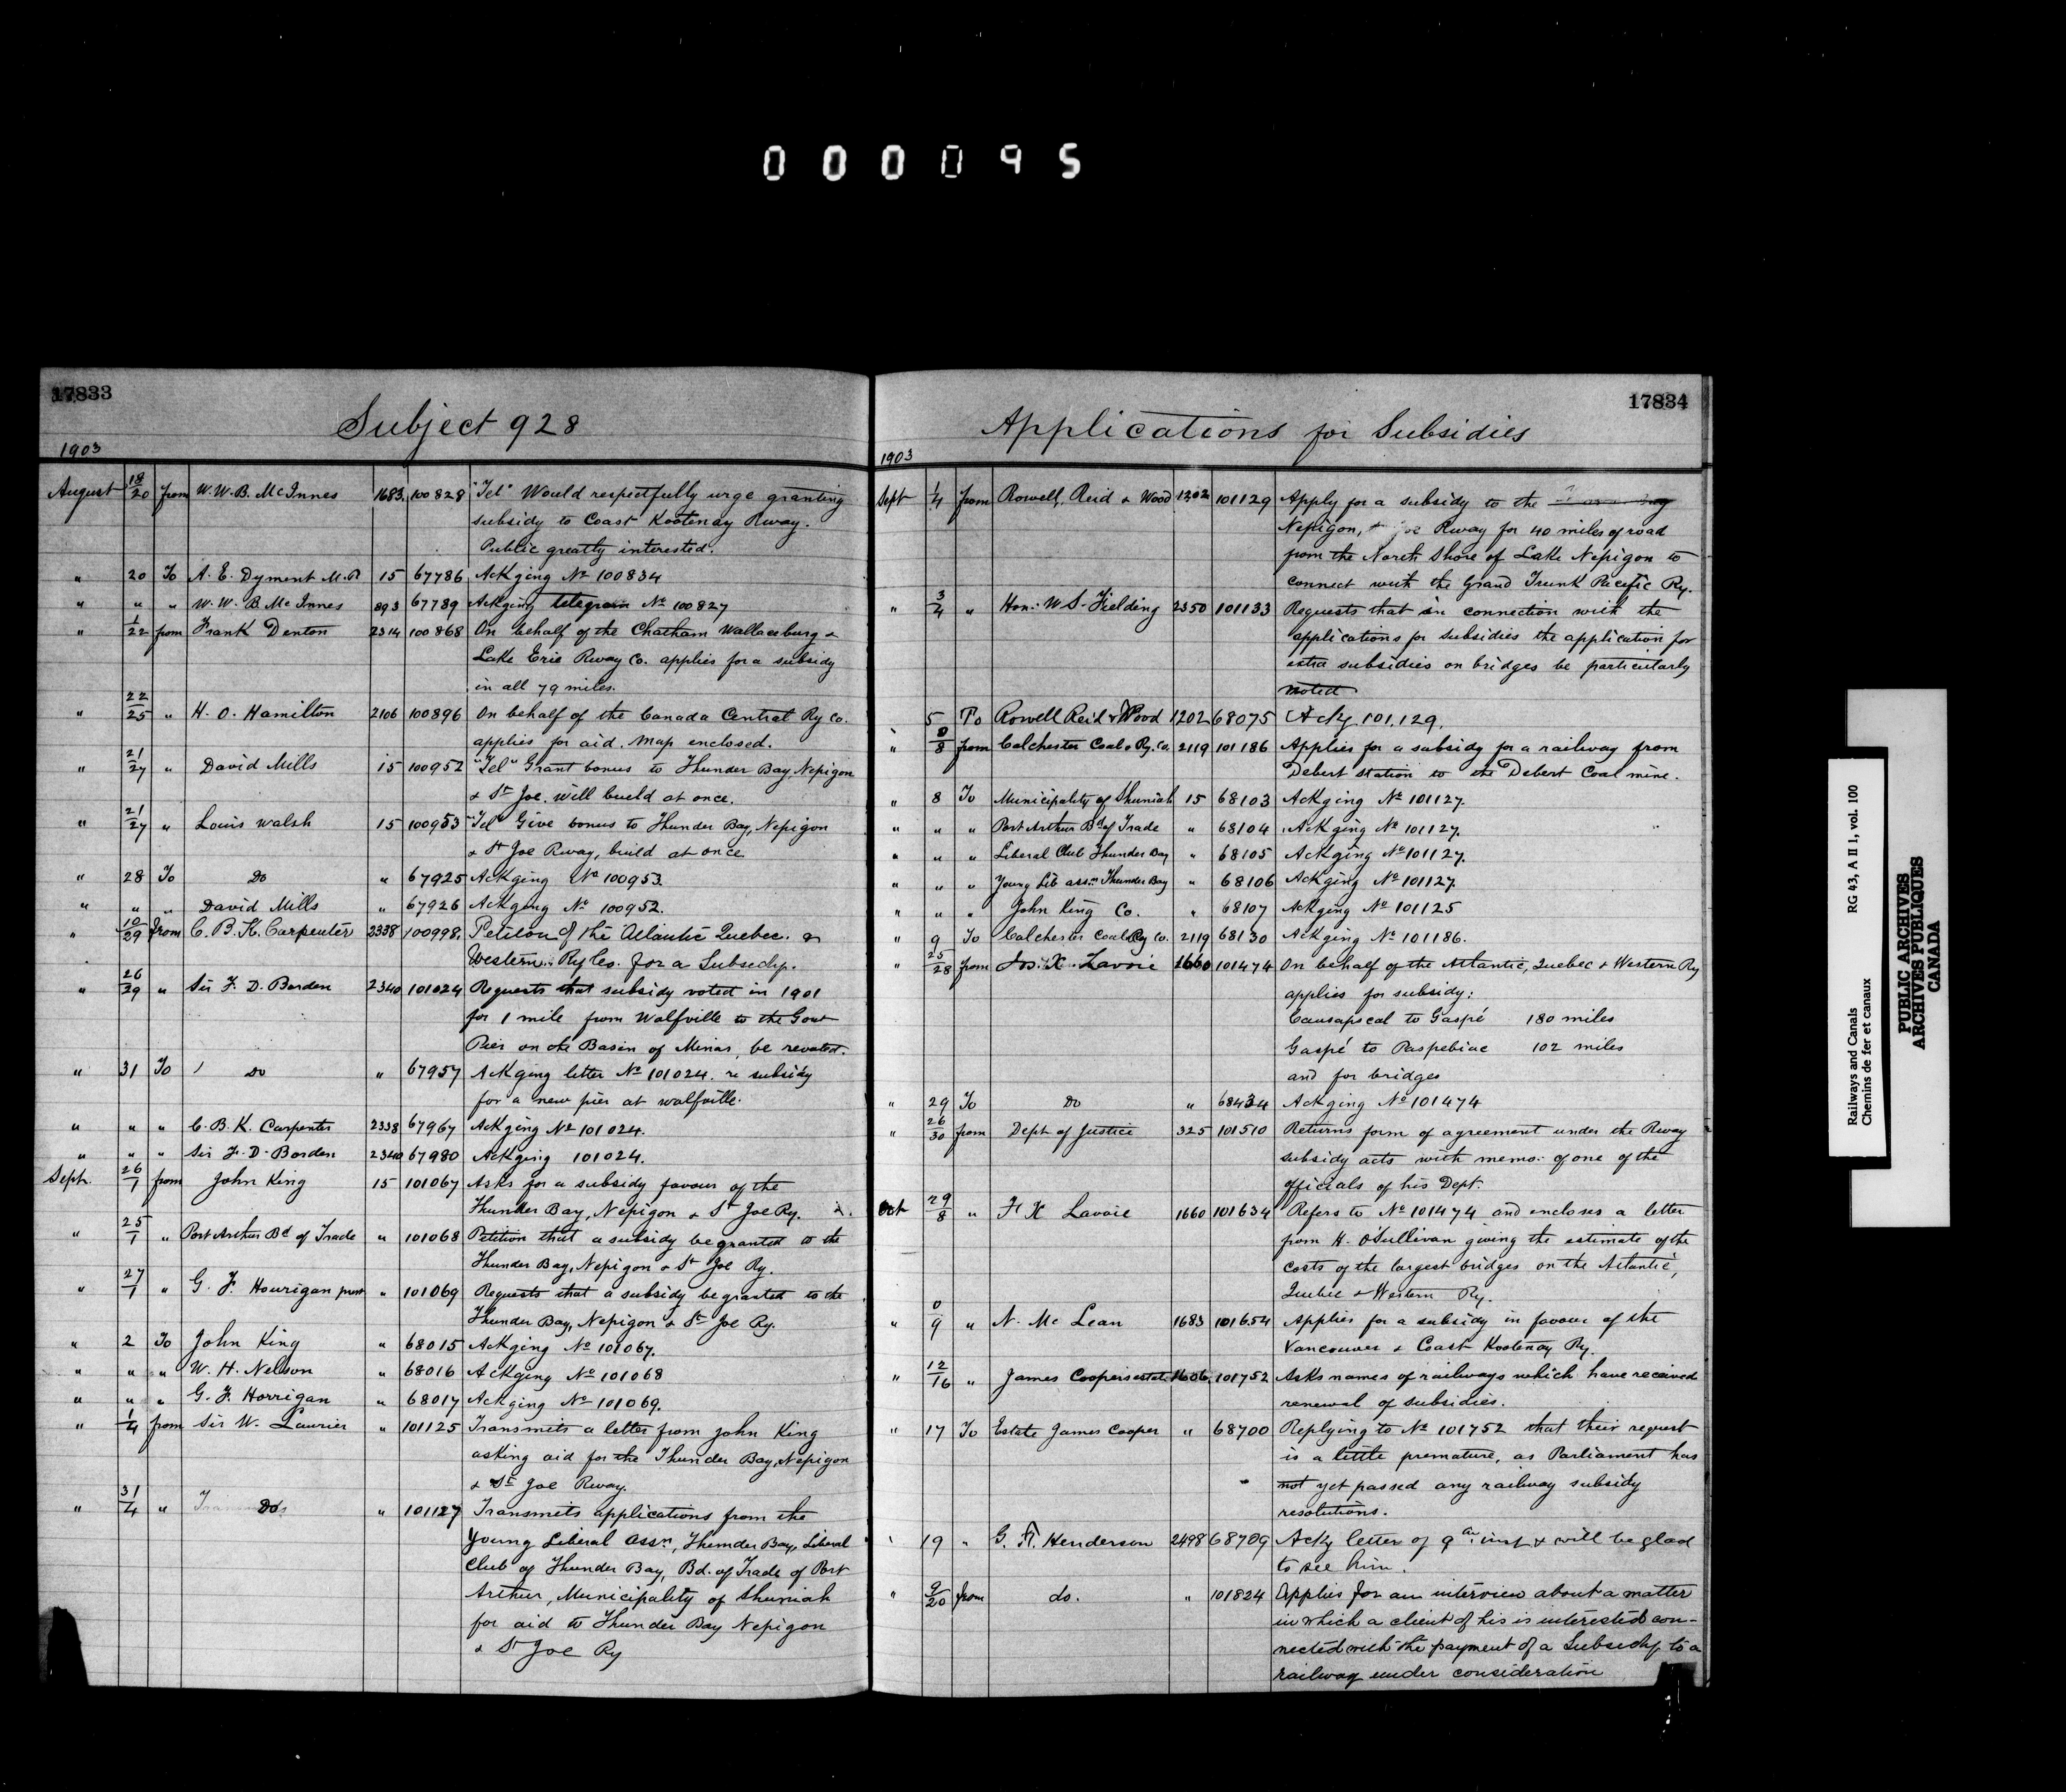 000095
17833
Subject 928
1903
August 18/20 from W. W. B. McInnes 1683 100828 "Tel" Would respectfully urge granting
subsidy to Coast Kootenay Rway.
Public greatly interested.
" 20 To A. E. Dyment M.P 15 67786 Ackging No 100834
" " " W. W. B. McInnes 893 67789 Ackging telegram No 100827
" 1/22 from Frank Denton 2314 100868 On behalf of the Chatham Wallaceburg &
Lake Erie Rway Co. applies for a subsidy
in all 79 miles.
" 22/25 " H. O. Hamilton 2106 100896 On behalf of the Canada Central Ry Co.
applies for aid. Map enclosed.
" 21/27 " David Mills 15 100952 "Tel" Grant bonus to Thunder Bay, Nepigon
& St Joe. will build at once.
" 21/27 " Louis Walsh 15 100953 "Tel" Give bonus to Thunder Bay, Nepigon
& St Joe Rway, build at once
" 28 To Do " 67925 Ackging No 100953.
" " " David Mills " 67926 Ackging No 100952.
" 10/29 from C. B. K. Carpenter 2338 100998. Petition of the Atlantic Quebec &
Western Ry Co. for a Subsidy.
" 26/29 " Sir F. D. Borden 2340 101024 Requests that subsidy voted in 1901
for 1 mile from Wolfville to the Govt
Pier on the Basin of Minas, be revoted.
" 31 To Do " 67957 Ackging letter No 101024. re subsidy
for a new pier at wolfville.
" " " C. B. K. Carpenter 2338 67967 Ackging No 101024.
" " " Sir F. D. Borden 2340 67980 Ackging 101024.
Sept. 26/1 from John King 15 101067 Asks for a subsidy favour of the
Thunder Bay, Nepigon & St Joe Ry.
" 25/1 " Port Arthur Bd of Trade " 101068 Petition that a subsidy be granted to the
Thunder Bay, Nepigon & St Joe Ry.
" 27/1 " G. F. Hourigan " 101069 Requests that a subsidy be granted to the
Thunder Bay, Nepigon & St Joe Ry.
" 2 To John King " 68015 Ackging No 101067.
" " " W. H. Nelson " 68016 Ackging No 101068
" " " G. F. Horrigan " 68017 Ackging No 101069.
" 1/4 from Sir W. Laurier " 101125 Transmits a letter from John King
asking aid for the Thunder Bay, Nepigon
& St Joe Rway.
" 31/4 " Do " 101127 Transmits applications from the
Young Liberal Assn, Thunder Bay, Liberal
Club of Thunder Bay, Bd. of Trade of Port
Arthur, Municipality of Shuniah
for aid to Thunder Bay Nepigon
& St Joe Ry
17834
Applications for Subsidies
1903
Sept 1/4 from Rowell, Reid & Wood 1202 101129 Apply for a subsidy to the
Nepigon, Rway for 40 miles of road
from the North Shore of Lake Nepigon to
connect with the Grand Trunk Pacific Ry.
" 3/4 " Hon. W. S. Fielding 2350 101133 Requests that in connection with the
applications for subsidies the application for
extra subsidies on bridges be particularly
noted
" 5 To Rowell Reid & Wood 1202 68075 Ackg 101,129.
" 8 from Colchester Coal & Ry. Co. 2119 101186 Applies for a subsidy for a railway from
Debert station to the Debert Coal mine.
" 8 To Municipality of Shuniah 15 68103 Ackging No 101127.
" " " Port Arthur Bd of Trade " 68104 Ackging No 101127.
" " " Liberal Club Thunder Bay " 68105 Ackging No 101127.
" " " Young Lib assn Thunder Bay " 68106 Ackging No 101127.
" " " John King Co. " 68107 Ackging No 101125
" 9 To Colchester Coal & Ry Co. 2119 68130 Ackging No 101186.
" 25/28 from X. Lavoie 1660 101474 On behalf of the Atlantic, Quebec & Western Ry
applies for subsidy:
Causapscal to Gaspé 180 miles
Gaspé to Paspebiac 102 miles
and for bridges
" 29 To Do " 68434 Ackging No 101474
" 26/30 from Dept of Justice 325 101510 Returns form of agreement under the Rway
subsidy acts with memo: of one of the
officials of his Dept.
Oct 29/8 " F X Lavoie 1660 101634 Refers to No 101474 and encloses a letter
from H. O'Sullivan giving the estimate of the
costs of the largest bridges on the Atlantic,
Quebec & Western Ry.
" 0/9 " N. McLean 1683 101654 Applies for a subsidy in favour of the
Vancouver & Coast Kootenay Ry.
" 12/16 " James Coopers estate 1606 101752 Asks names of railways which have received
renewal of subsidies.
" 17 To Estate James Cooper " 68700 Replying to No 101752 that their request
is a little premature, as Parliament has
not yet passed any railway subsidy
resolutions.
" 19 " G. F. Henderson 2498 68709 Ackg letter of 9th inst & will be glad
to see him.
" 9/20 from do. " 101824 Applies for an interview about a matter
in which a client of his is interested con-
nected with the payment of a Subsidy to a
railway under consideration
Railways and Canals RG 43, A II 1, vol. 100
Chemins de fer et canaux
PUBLIC ARCHIVES
ARCHIVES PUBLIQUES
CANADA